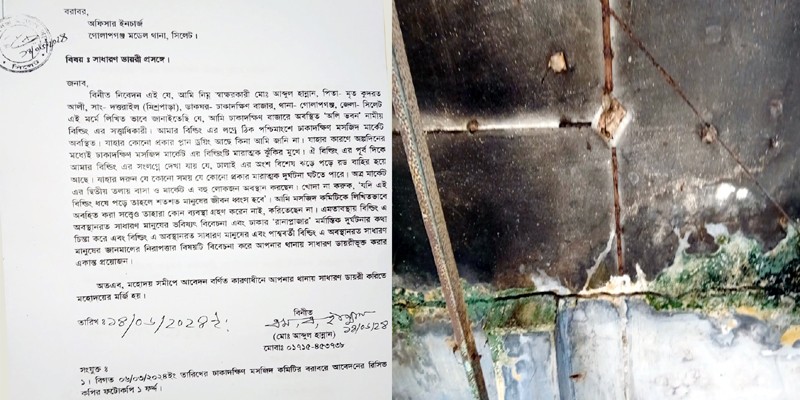 বরাবর,
অফিসার ইনচার্জ
গোলাপগঞ্জ মডেল থানা, সিলেট।
বিষয় ঃ সাধারণ ডায়রী প্রসঙ্গে।
জনাব,
বিনীত নিবেদন এই যে, আমি নিম্ন স্বাক্ষরকারী মোঃ আব্দুল হান্নান, পিতা- মৃত কুদরত
আলী, সাং- দত্তরাইল (মিশ্রপাড়া), ডাকঘর- ঢাকাদক্ষিণ বাজার, থানা- গোলাপগঞ্জ, জেলা- সিলেট
এই মর্মে লিখিত ভাবে জানাইতেছি যে, আমি ঢাকাদক্ষিণ বাজারে অবস্থিত 'অলি ভবন' নামীয়
বিল্ডিং এর সত্ত্বাধিকারী। আমার বিল্ডিং এর লগে ঠিক পশ্চিমাংশে ঢাকাদক্ষিণ মসজিদ মার্কেট
অবস্থিত। যাহার কোনো প্রকার প্লান ড্রয়িং আছে কিনা আমি জানি না। যাহার কারণে অল্পদিনের
মধ্যেই ঢাকাদক্ষিণ মসজিদ মার্কেট এর বিল্ডিংটি মারাত্মক ঝুঁকির মূখে। ঐ বিল্ডিং এর পূর্ব দিকে
আমার বিল্ডিং এর সংলগ্নে দেখা যায় যে, ঢালাই এর অংশ বিশেষ ঝড়ে পড়ে রড বাহির হয়ে
আছে। যাহার দরুন যে কোনো সময় যে কোনো প্রকার মারাত্মক দুর্ঘটনা ঘটতে পারে। অত্র মার্কেট
এর দ্বিতীয় তলায় বাসা ও মার্কেট এ বহু লোকজন অবস্থান করছেন। খোদা না করুক, 'যদি এই
বিল্ডিং ধসে পড়ে তাহলে শতশত মানুষের জীবন ধ্বংস হবে'। আমি মসজিদ কমিটিকে লিখিতভাবে
অবহিত করা সত্ত্বেও তাহারা কোন ব্যবস্থা গ্রহণ করেন নাই, করিতেছেন না। এমতাবস্থায় বিল্ডিং এ
অবস্থানরত সাধারণ মানুষের ভবিষ্যৎ বিবেচনা এবং ঢাকার 'রানাপ্লাজার' মর্মান্তিক দুর্ঘটনার কথা
চিন্তা করে এবং বিল্ডিং এ অবস্থানরত সাধারণ মানুষের এবং পার্শ্ববর্তী বিল্ডিং এ অবস্থানরত সাধারণ
মানুষের জানমালের নিরাপত্তার বিষয়টি বিবেচনা করে আপনার থানায় সাধারণ ডায়রীভূক্ত করার
একান্ত প্রয়োজন।
অতএব, মহোদয় সমীপে আবেদন বর্ণিত কারণাধীনে আপনার থানায় সাধারণ ডায়রী করিতে
মহোদয়ের মর্জি হয়।
তারিখ ঃ ১৪/০৬/২০২৪ ইং
বিনীত
১৪/০৬/২৪
(মোঃ আব্দুল হান্নান)
মোবাঃ ০১৭১৫-৪৫৩৭৩৮
সংযুক্ত ঃ
১। বিগত ০৬/০৩/২০২৪ইং তারিখের ঢাকাদক্ষিণ মসজিদ কমিটির বরাবরে আবেদনের রিসিভ
কপির ফটোকপি ১ ফর্দ্দ।